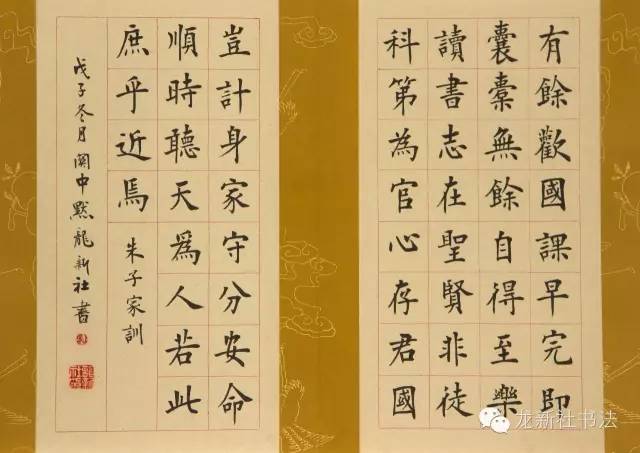 有餘歡國課早完即
囊橐無餘自得至樂
讀書志在聖賢非徒
科第為官心存君國
豈計身家守分安命
順時聽天爲人若此
庶乎近焉 朱子家訓
戊子冬月関中黙龍新社書
龙新社书法